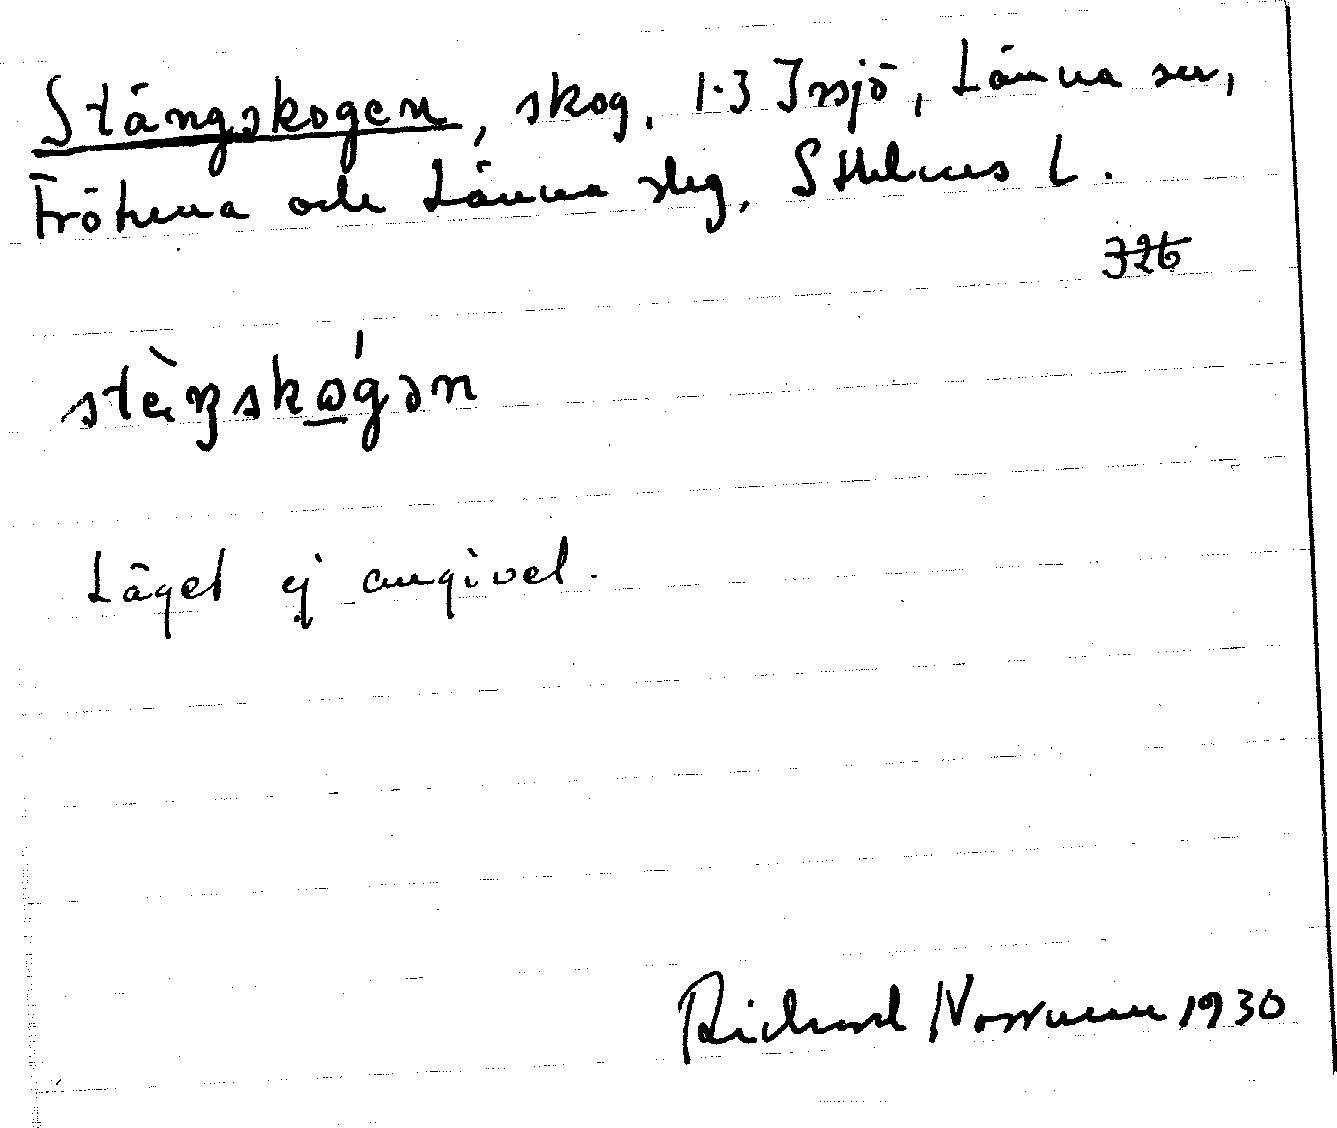 Stängskogen, skog, 1.3 Irsjö, Länna sn,
Frötuna och Länna slg, Sthlms L.
326
stèŋskωgən
Läget ej angivet.
Richard Norrman 1930